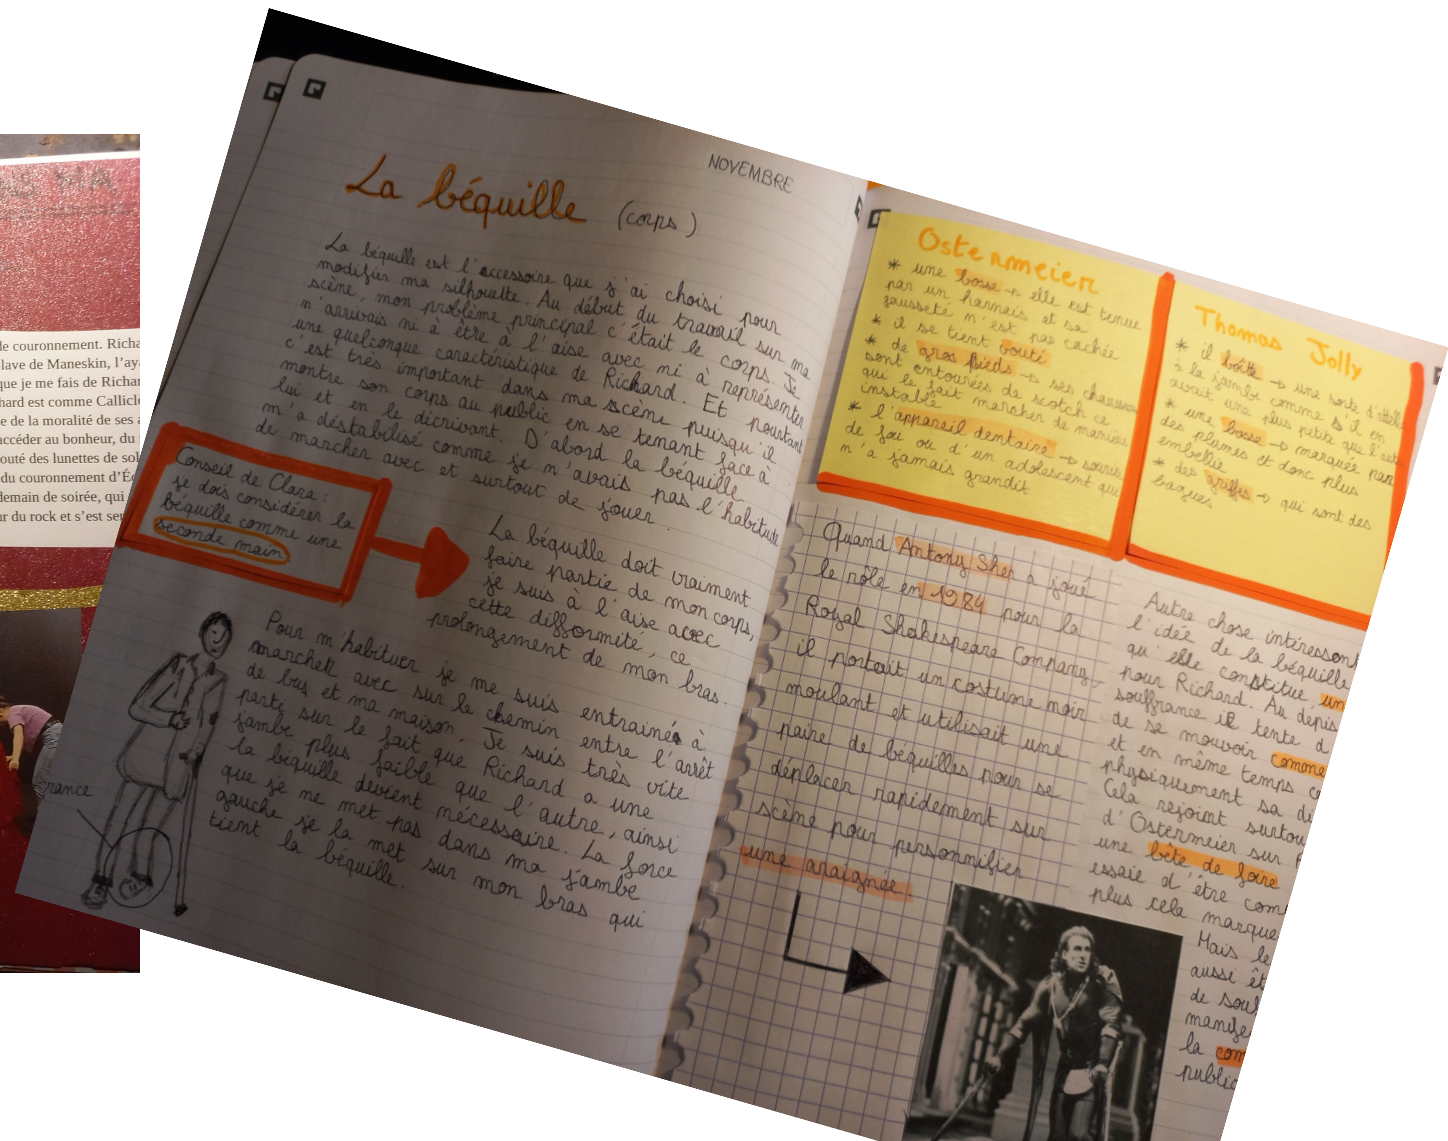 de couronnement. Richa
lave de Maneskin, l'aya
que je me fais de Richar
hard est comme Callicle
e de la moralité de ses a
accéder au bonheur, du
outé des lunettes de sol
du couronnement d'Éd
demain de soirée, qui
ur du rock et s'est ser
NOVEMBRE
La béquille (corps)
La béquille est l'accessoire que j'ai choisi pour
modifier ma silhouette. Au début du travail sur ma
scène, mon problème principal c'était le corps. Je
n'arrivais ni à être à l'aise avec ni à représenter
une quelconque caractéristique de Richard. Et pourtant
c'est très important dans ma scène puisqu'il
montre son corps au public en se tenant face à
lui et en le décrivant. D'abord la béquille
m'a déstabilisé comme je n'avais pas l'habitude
de marcher avec et surtout de jouer.
Conseil de Clara :
je dois considérer la
béquille comme une
seconde main
La béquille doit vraiment
faire partie de mon corps,
je suis à l'aise avec
cette difformité, ce
prolongement de mon bras.
Pour m'habituer je me suis entrainée à
marcher avec sur le chemin entre l'arrêt
de bus et ma maison. Je suis très vite
parti sur le fait que Richard a une
jambe plus faible que l'autre, ainsi
la béquille devient nécessaire. La force
que je ne met pas dans ma jambe
gauche je la met sur mon bras qui
tient la béquille.
rance
Ostermeier
* une bosse → elle est tenue
par un harnais et sa
fausseté n'est pas cachée
* il se tient vouté
* de gros pieds → ses chaussures
sont entourées de scotch ce
qui le fait marcher de manière
instable
* l'appareil dentaire → sourire
de fou ou d'un adolescent qui
n'a jamais grandit
Thomas Jolly
* il boîte → une sorte d'attelle
à la jambe comme s'il en
avait une plus petite que l'autre
* une bosse → marquée par
des plumes et donc plus
embellie
* des griffes → qui sont des
bagues
Quand Antony Sher a joué
le rôle en 1984 pour la
Royal Shakespeare Company,
il portait un costume noir
moulant et utilisait une
paire de béquilles pour se
déplacer rapidement sur
scène pour personnifier
une araignée.
Autre chose intéressant
l'idée de la béquille
qu'elle constitue un
pour Richard. Au dépis
souffrance il tente d
de se mouvoir comme
et en même temps c
physiquement sa d
Cela rejoint surtou
d'Ostermeier sur
une bête de foire
essaie d'être com
plus cela marque
Mais le
aussi êt
de soul
manife
la com
public